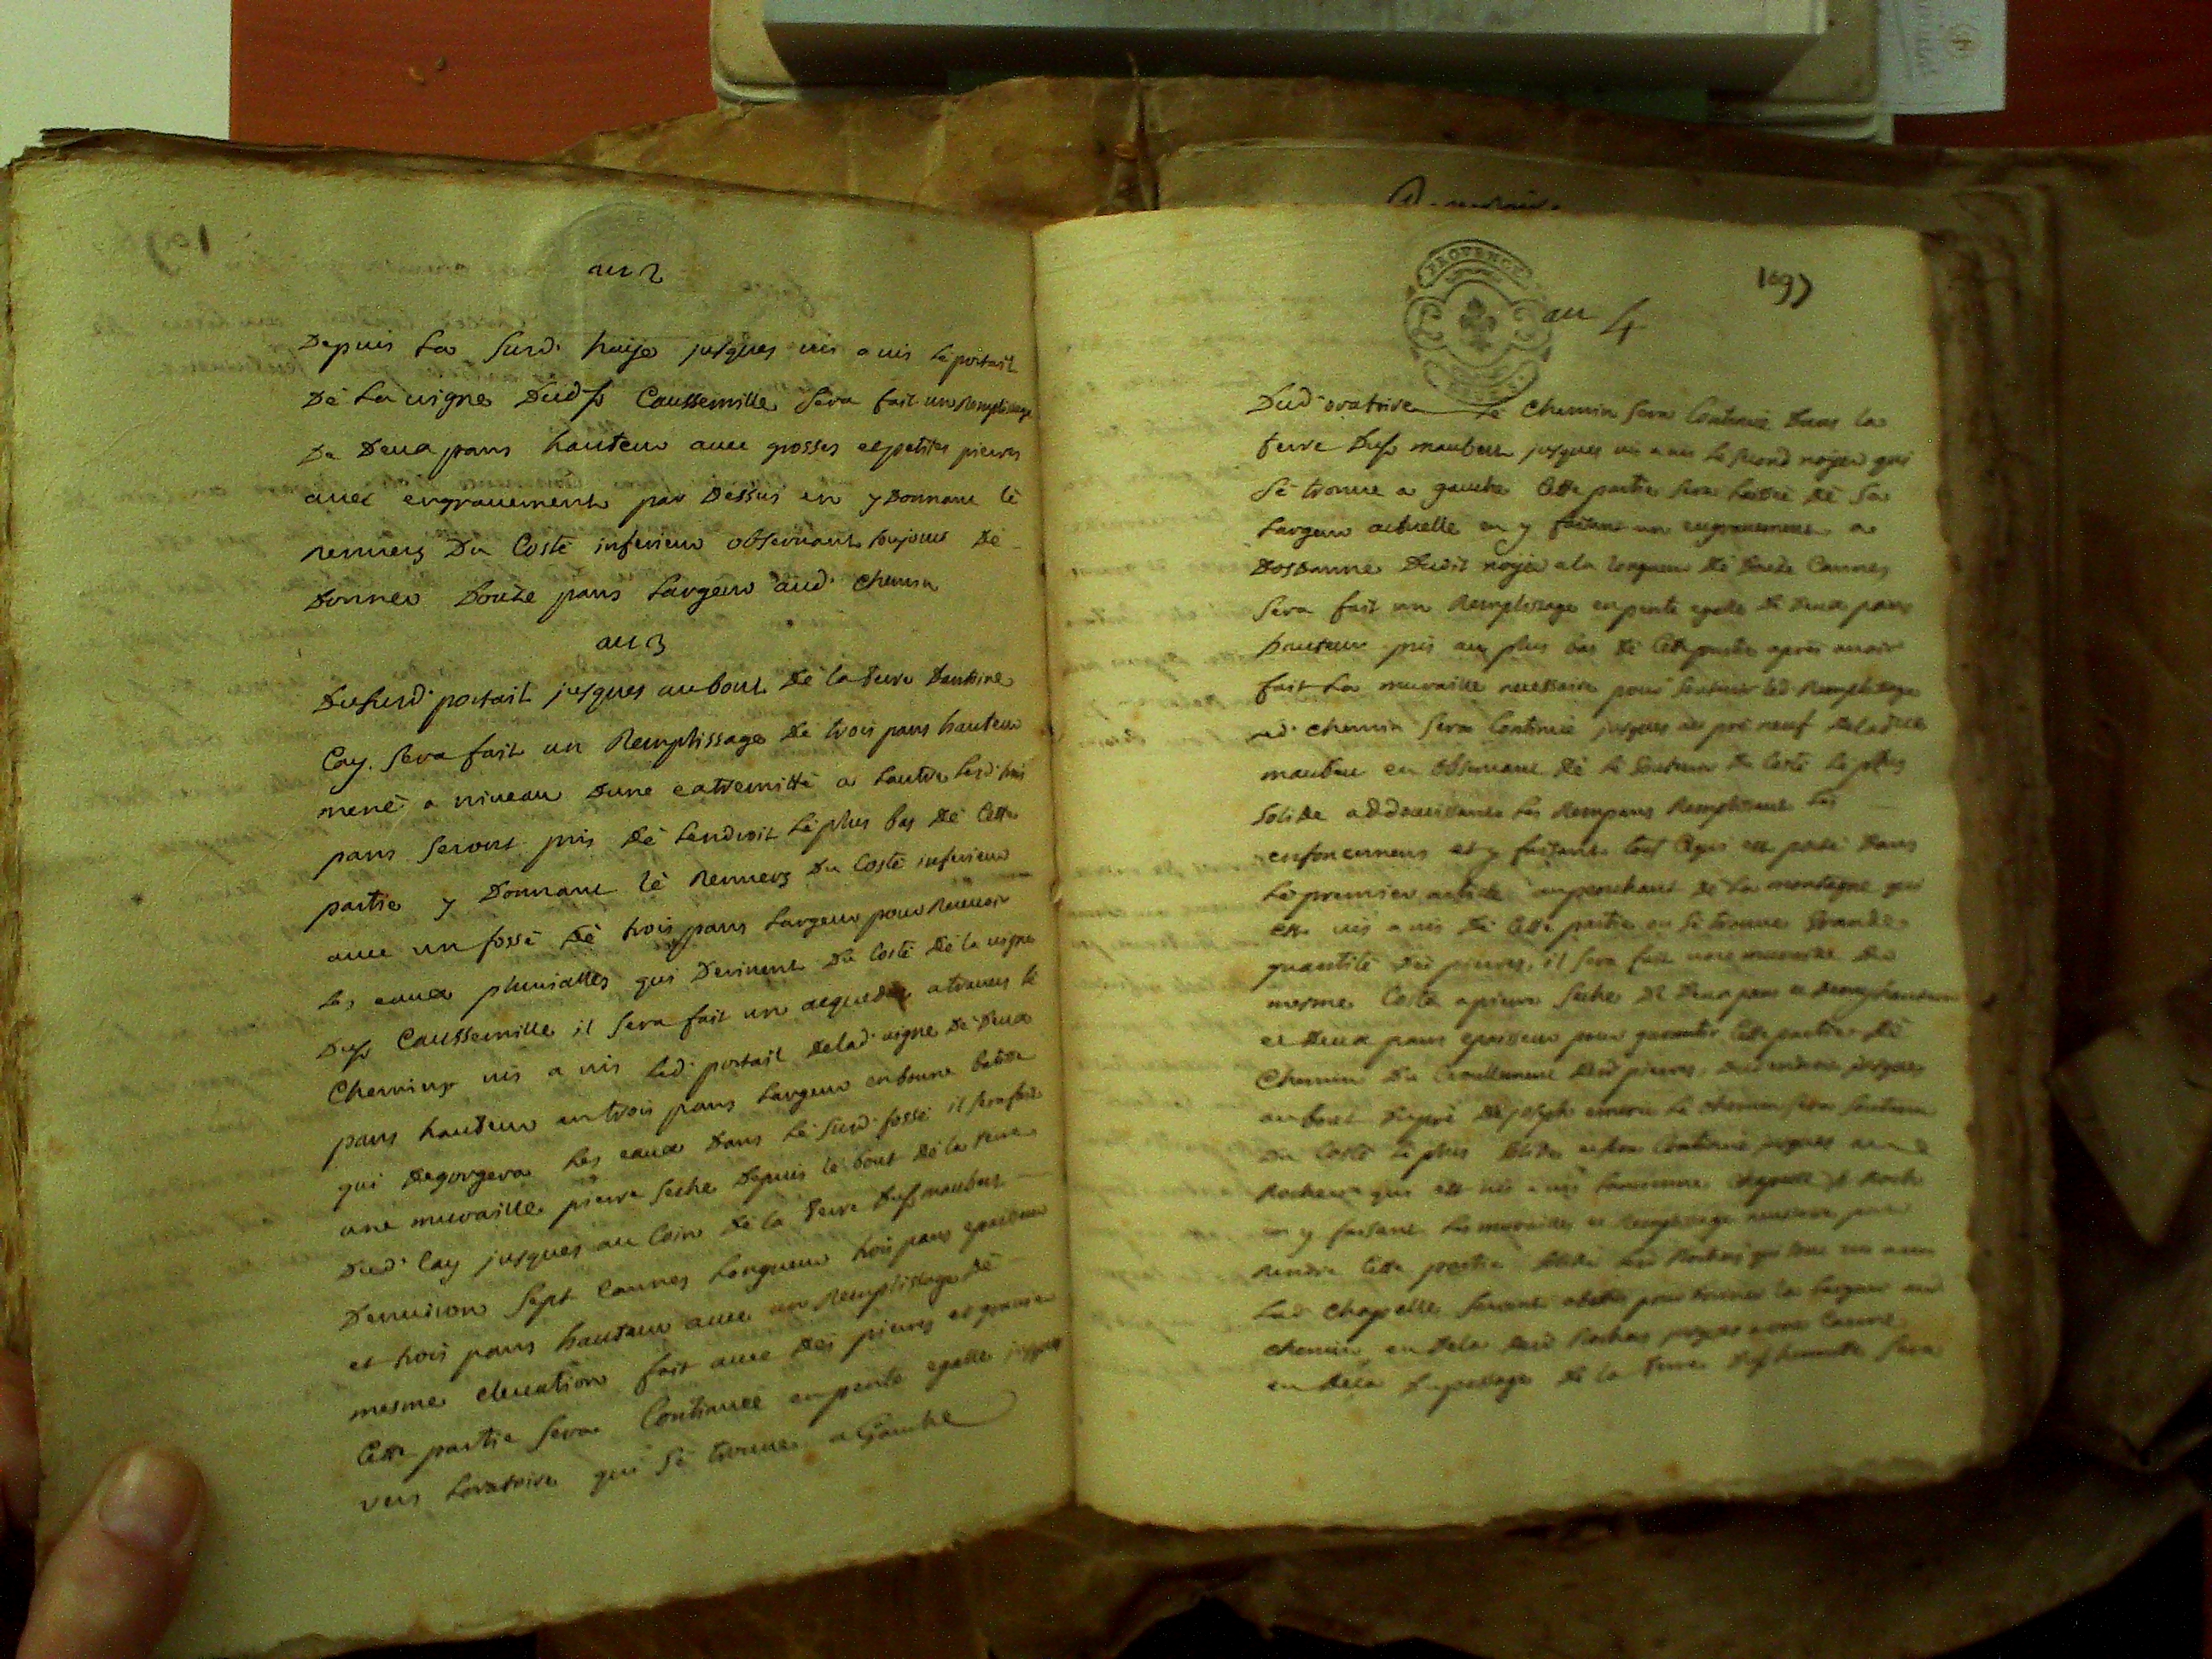 au 2
Depuis La Surd. haije jusques vis a vis Le portail
Dé La uigne Dud Sr Caussemille Sera fait un Remplissage
De Deux pans hauteur auec grosses et petites pierres
auec engrauement par Dessus en y Donnant lé
renuers Du Costé inferieur obseruant toujours Dé
Donner Douze pans Largeur aud. Chemin
au 3
Du Surd. portail jusques au bout Dé la terre
Cay. Sera fait un Remplissage Dé trois pans hauteur
mené a niveau Dune extremitté a Lautre Lesd. trois
pans Seront pris Dé Lendroit Lé plus bas Dé Cette
partie y Donnant lé Renuers Du Costé inferieur
auec un fossé Dé trois pans Largeur pour Receuoir
Les eaux pluuialles qui Deriuent Du Costé Dé la uigne
Du Sr Caussemille il Sera fait un aequeduc a trauers le
Chemin vis a vis Led. portail Delad. uigne Dé Deux
pans hauteur en trois pans Largeur en bonne batisse
qui Degorgera Les eaux Dans Lé Surd. fossé il Sera fait
une muraille pierre Seche Depuis le bout Dé la terre
Dud. Cay jusques au Coin Dé la terre Du Sr maubert
Denuiron Sept Cannes Longueur trois pans epaisseur
et trois pans hauteur auec un Remplissage Dé
mesme eleuation fait auec Des pierres et grauier
Cette partie Sera Continuée en pente egalle jusques
vers Loratoire qui Sé trouue a Gauche
PROVENCE
1097
au 4
Dud. oratoire Le Chemin Sera Continué Dans la
terre Du Sr maubert jusques vis a vis Le Second noyer qui
Sé trouue a gauche Cette partie Sera Laissée Dé Sa
Largeur actuelle en y faisant un engrauement a
Dosdanne Dudit noyer a la Longueur Dé Douze Cannes
Sera fait un Remplissage en pente egalle Dé Deux pans
hauteur pris au plus bas Dé Cette partie après auoir
fait La muraille necessaire pour Soutenir led Remplissage
Led. Chemin Sera Continué jusques au pré neuf
en obseruant Dé Lé Soutenir Du Costé Le plus
Solide addoucissant Les Rempans Remplissant Les
enfoncemens et y faisant tout Ce qui est porté Dans
Lé premier article au panchant Dé La montagne qui
Est vis a vis Dé Cette partie ou Sé trouue Grande
quantité Dé pierres, il Sera fait une muraille Du
mesme Costé a pierre Seche De Deux pans et Demy hauteur
et Deux pans epaisseur pour garantir Cette partie Dé
Chemin Du Croullement Desd pierres, jusques
au bout Du pré De joseph Le chemin Sera Soutenu
Du Costé Le plus Solide et Sera Continué jusques au
Rocher qui est vis a vis Chapelle St Roch
en y faisant Les murailles et Remplissage necessaire pour
Rendre Cette partie Solide Les Rochers qui Sont vis a vis
Lad. Chapelle Seront abatus pour Donner la Largeur aud
chemin en Dela Desd Rochers jusques a une Canne
en Dela Du passage De la terre Sera